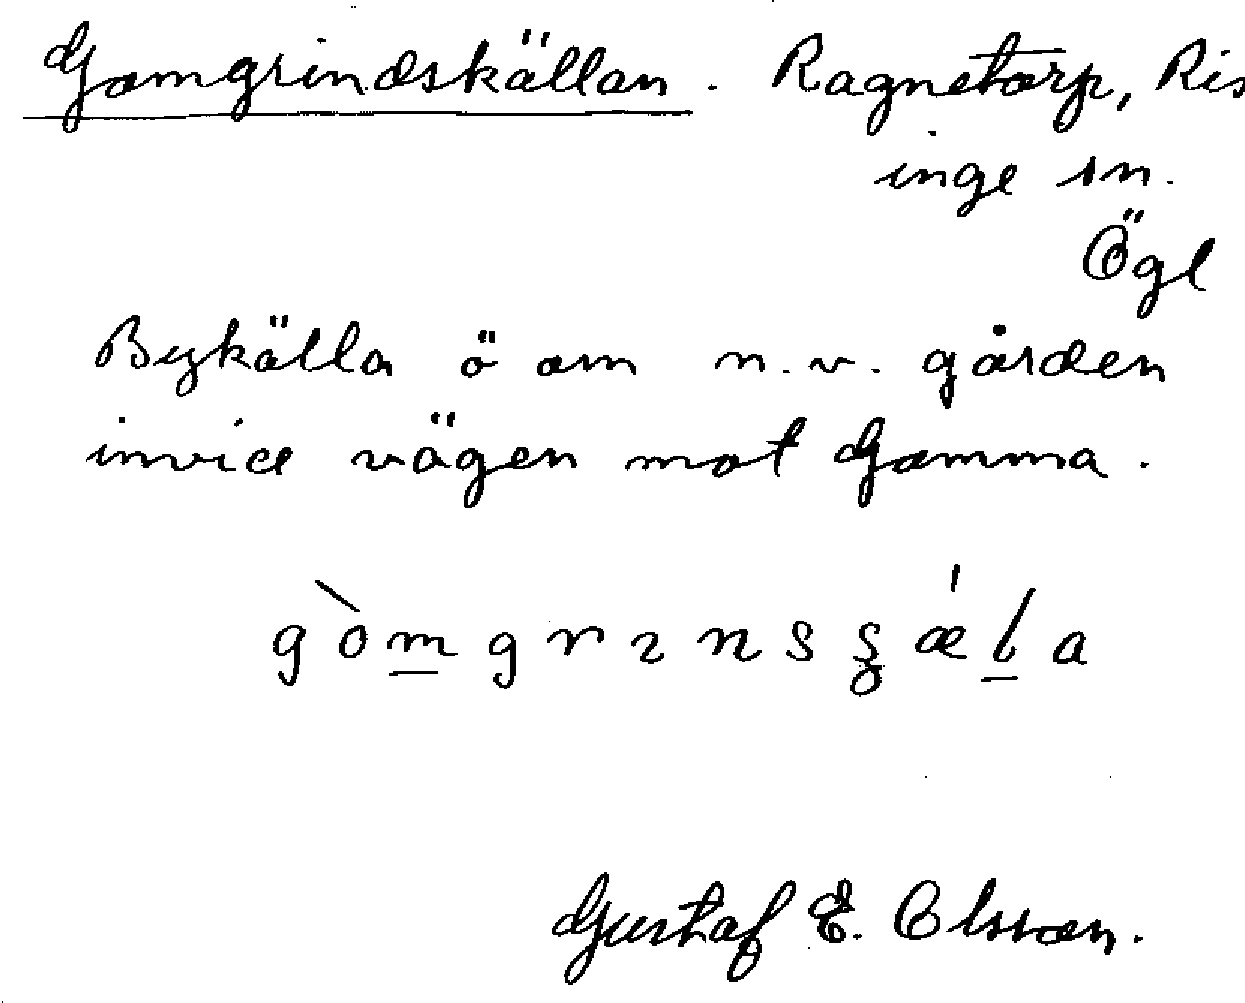 Gomgrindskällan. Ragnetorp, Ris
inge sn.
Ögl
Bykälla ö om n.v. gården
invid vägen mot Gomma.
gòmgrınsʂǽla
Gustaf E. Olsson.